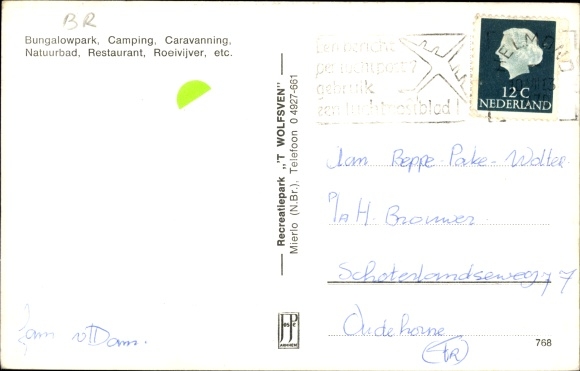 BR
Bungalowpark, Camping, Caravanning,
Natuurbad, Restaurant, Roeivijver, etc.
Recreatiepark „'T WOLFSVEN"
Mierlo (N.Br.), Telefoon 0 4927-661
Een bericht
per luchtpost?
gebruik
een luchtpostblad!
HELMOND
12 C
NEDERLAND
Aan
I/A H. Brouwer.
Schoterlandseweg 77
Oudehorne
(FR)
Jan v Dam.
JosPé
ARNHEM
768